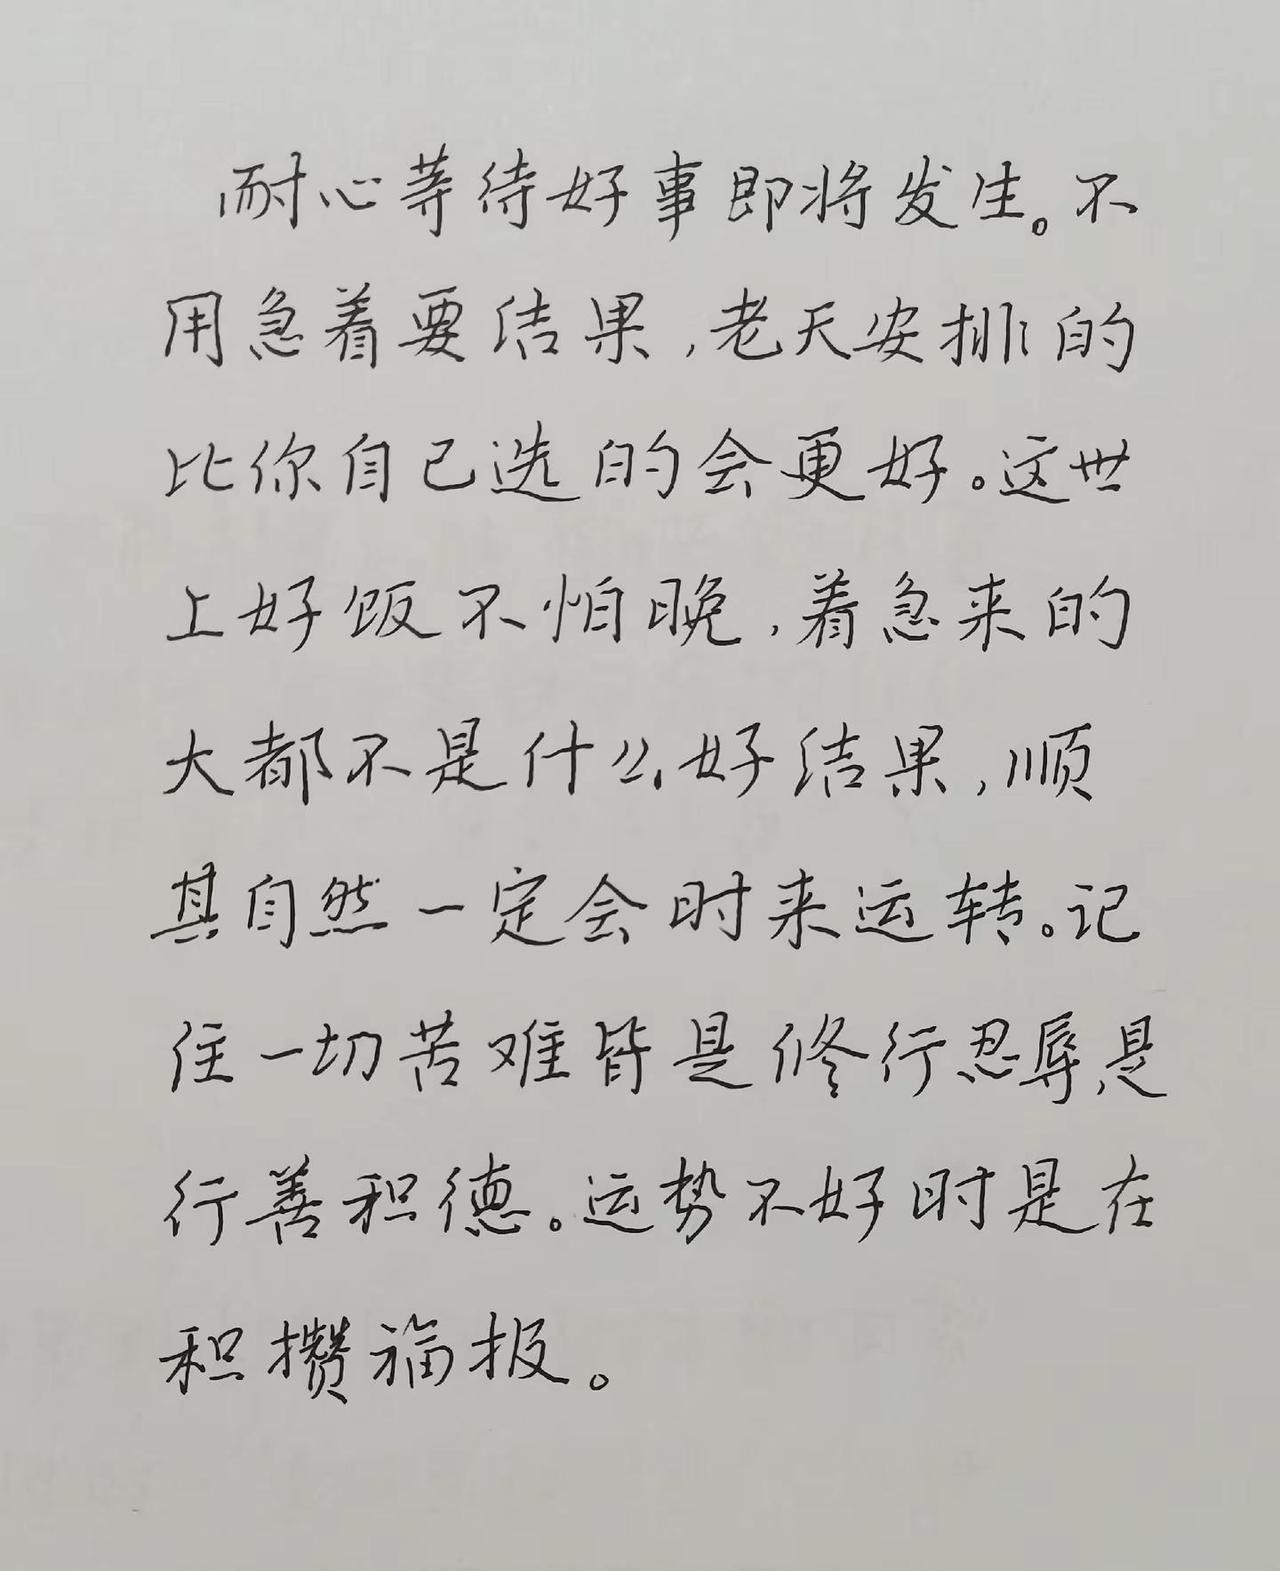 耐心等待好事即将发生。不
用急着要结果,老天安排的
比你自己选的会更好。这世
上好饭不怕晚,着急来的
大都不是什么好结果,顺
其自然一定会时来运转。记
住一切苦难皆是修行忍辱,是
行善积德。运势不好时是在
积攒福报。